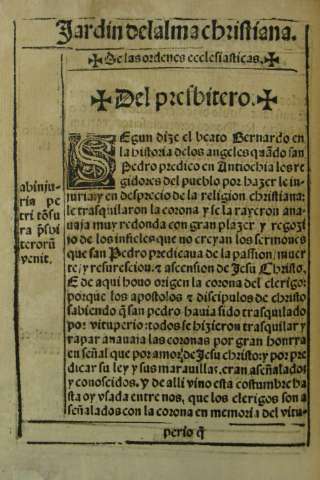 Jardin del alma christiana.
✠De las ordenes ecclesiasticas.✠
✠Del presbitero.✠
SEgun dize el beato Bernardo en
la historia de los angeles quãdo san
Pedro predico en Antiochia los re
gidores del pueblo por hazer le in
juria y en desprecio de la religion christiana:
le trasquilaron la corona y se la rayeron ana
uaja muy redonda con gran plazer y regozi
jo de los infieles que no creyan los sermones
que san Pedro predicaua de la passion/muer
te/y resurecion/& ascension de Jesu Christo.
E de aqui houo origen la corona del clerigo:
porque los apostolos & discipulos de christo
sabiendo q̃ san pedro hauia sido trasquilado
por vituperio: todos se hizieron trasquilar y
rapar anauaja las coronas por gran honrra
en señal que por amor de Jesu christo: y por pre
dicar su ley y sus marauillas. eran aseñalados
y conoscidos. y de alli vino esta costumbre ha
sta oy vsada entre nos, que los clerigos son a
señalados con la corona en memoria del vitu-
perio q̃
abinju-
ria pe
tri tõsu
ra p̃sbi
terorũ
venit.